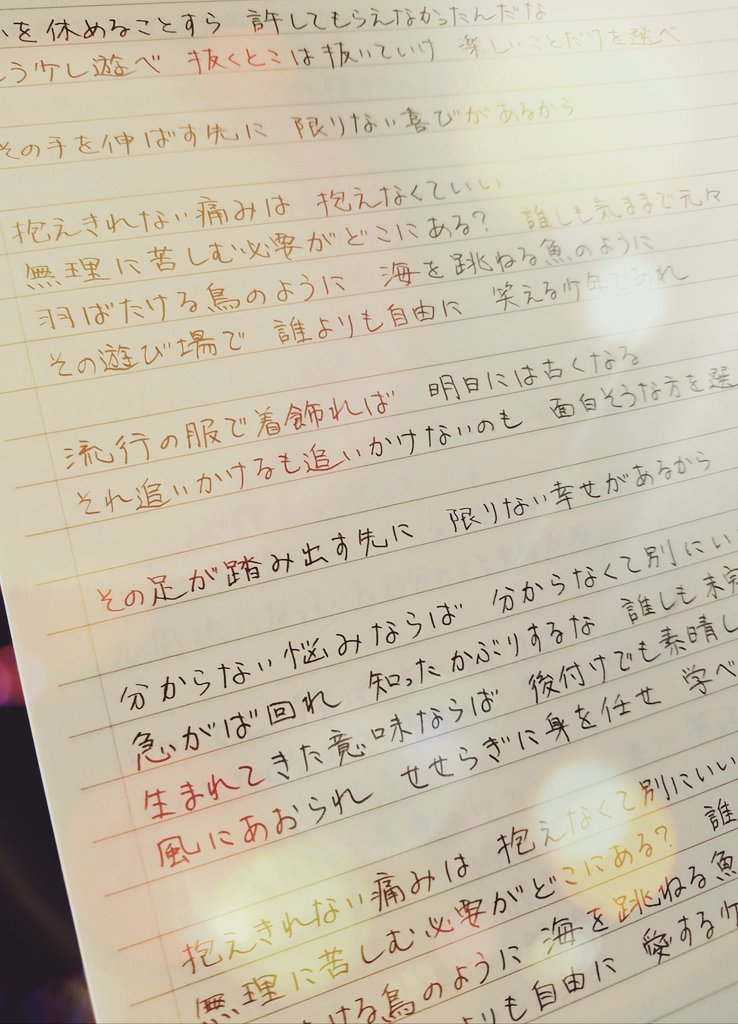 を休めることすら 許してもらえなかったんだな
う少し遊べ 抜くとこは抜いていけ 楽しいことだけを選べ
その手を伸ばす先に 限りない喜びがあるから
抱えきれない痛みは 抱えなくていい
無理に苦しむ必要がどこにある? 誰しも気ままで元々
羽ばたける鳥のように 海を跳ねる魚のように
その遊び場で 誰よりも自由に 笑える少年であれ
流行の服で着飾れば 明日には古くなる
それ追いかけるも追いかけないのも 面白そうな方を選
その足が踏み出す先に 限りない幸せがあるから
分からない悩みならば 分からなくて別にい
急がば回れ 知ったかぶりするな 誰しも未完
生まれてきた意味ならば 後付けでも素晴し
風にあおられ せせらぎに身を任せ 学べ
抱えきれない痛みは 抱えなくて別にいい
無理に苦しむ必要がどこにある? 誰
ける鳥のように 海を跳ねる魚
よりも自由に 愛する少